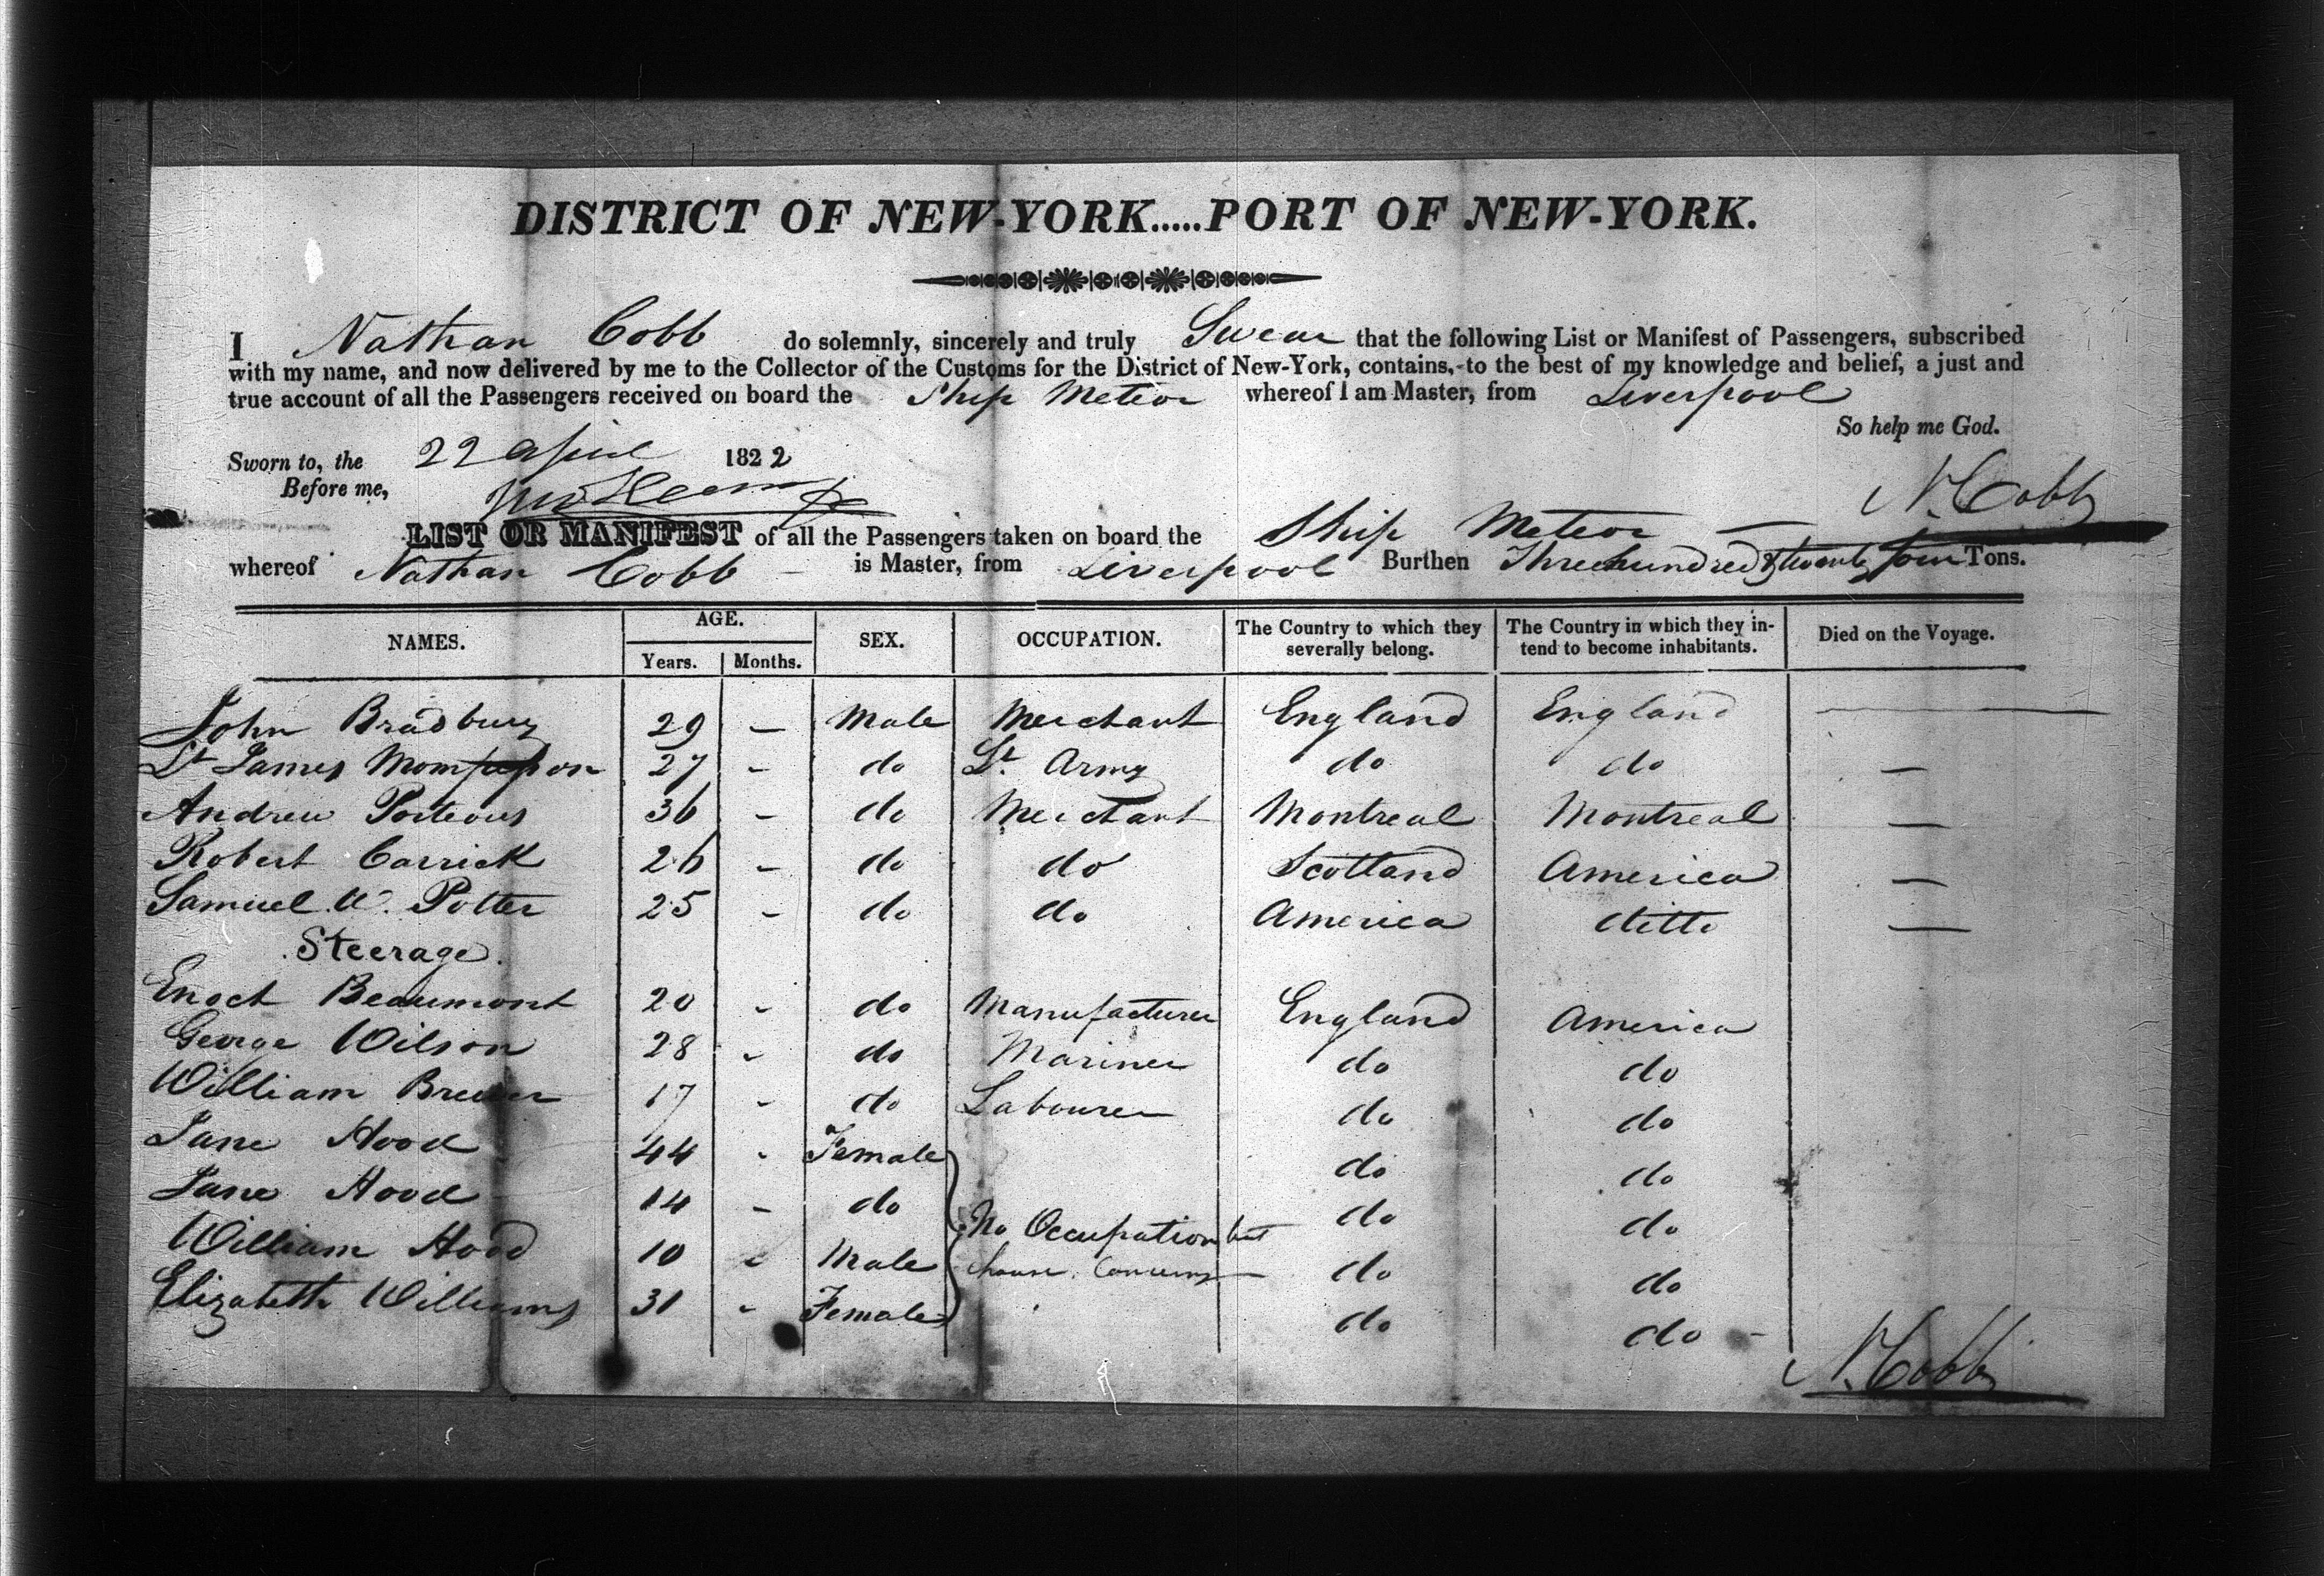 DISTRICT OF NEW-YORK.....PORT OF NEW-YORK.
I Nathan Cobb do solemnly, sincerely and truly Swear that the following List or Manifest of Passengers, subscribed
with my name, and now delivered by me to the Collector of the Customs for the District of New-York, contains, to the best of my knowledge and belief, a just and
true account of all the Passengers received on board the Ship Meteor whereof I am Master, from Liverpool
So help me God.
Sworn to, the 22 April 1822
Before me,
N. Cobb
LIST OR MANIFEST of all the Passengers taken on board the Ship Meteor
whereof Nathan Cobb is Master, from Liverpool Burthen Three hundred & twenty four Tons.
NAMES. AGE. Years. Months. SEX. OCCUPATION. The Country to which they severally belong. The Country in which they intend to become inhabitants. Died on the Voyage.
John Bradbury 29 — Male Merchant England England —
Lt James Mompesson 27 - do Lt. Army do do —
Andrew Porteous 36 - do Merchant Montreal Montreal —
Robert Carrick 26 - do do Scotland America —
Samuel W. Potter 25 - do do America ditto —
Steerage.
Enoch Beaumont 20 - do Manufacturer England America
George Wilson 28 - do Mariner do do
William Brewer 17 - do Labourer do do
Jane Hood 44 - Female do do
Jane Hood 14 - do do do
William Hood 10 - Male No Occupation but do do
Elizabeth Williams 31 - Female house Concerns do do
N. Cobb